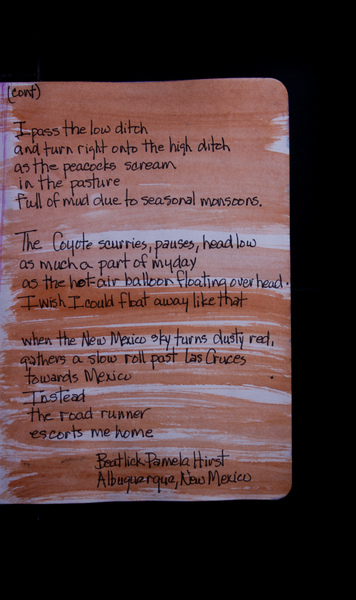 (cont)
I pass the low ditch
and turn right onto the high ditch
as the peacocks scream
in the pasture
full of mud due to seasonal monsoons.
The Coyote scurries, pauses, head low
as much a part of my day
as the hot-air balloon floating overhead.
I wish I could float away like that
when the New Mexico sky turns dusty red,
gathers a slow roll past Las Cruces
towards Mexico
Instead
the road runner
escorts me home
Beatlick Pamela Hirst
Albuquerque, New Mexico